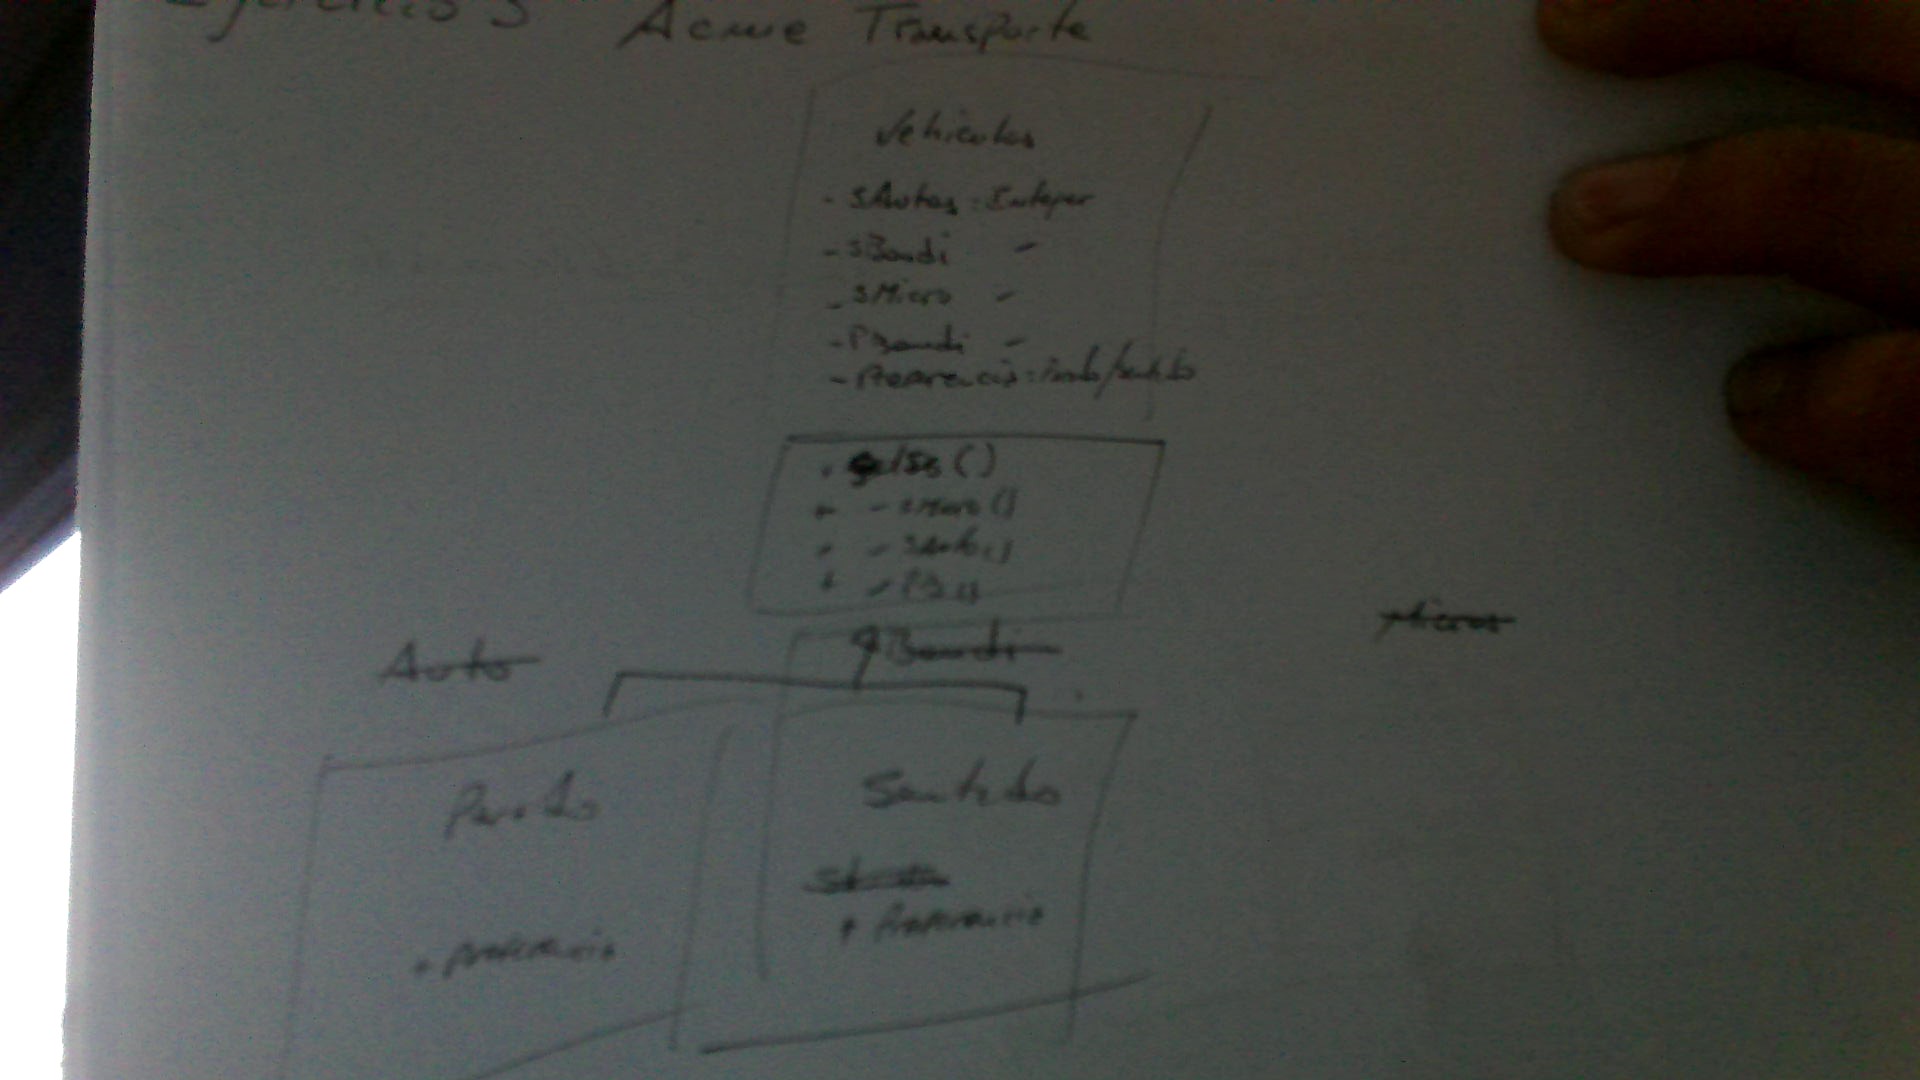 Ejercicio 3 Acme Transporte
Vehiculos
- sAutos : Integer
- sBondi "
- sMicro "
- PBondi "
- Preferencia : Parado/Sentado
+ - sMicro ()
+ - sAuto ()
+ - PB ()
Auto
Bondi
Micros
Parado
Sentado
+ preferencia
+ Preferencia